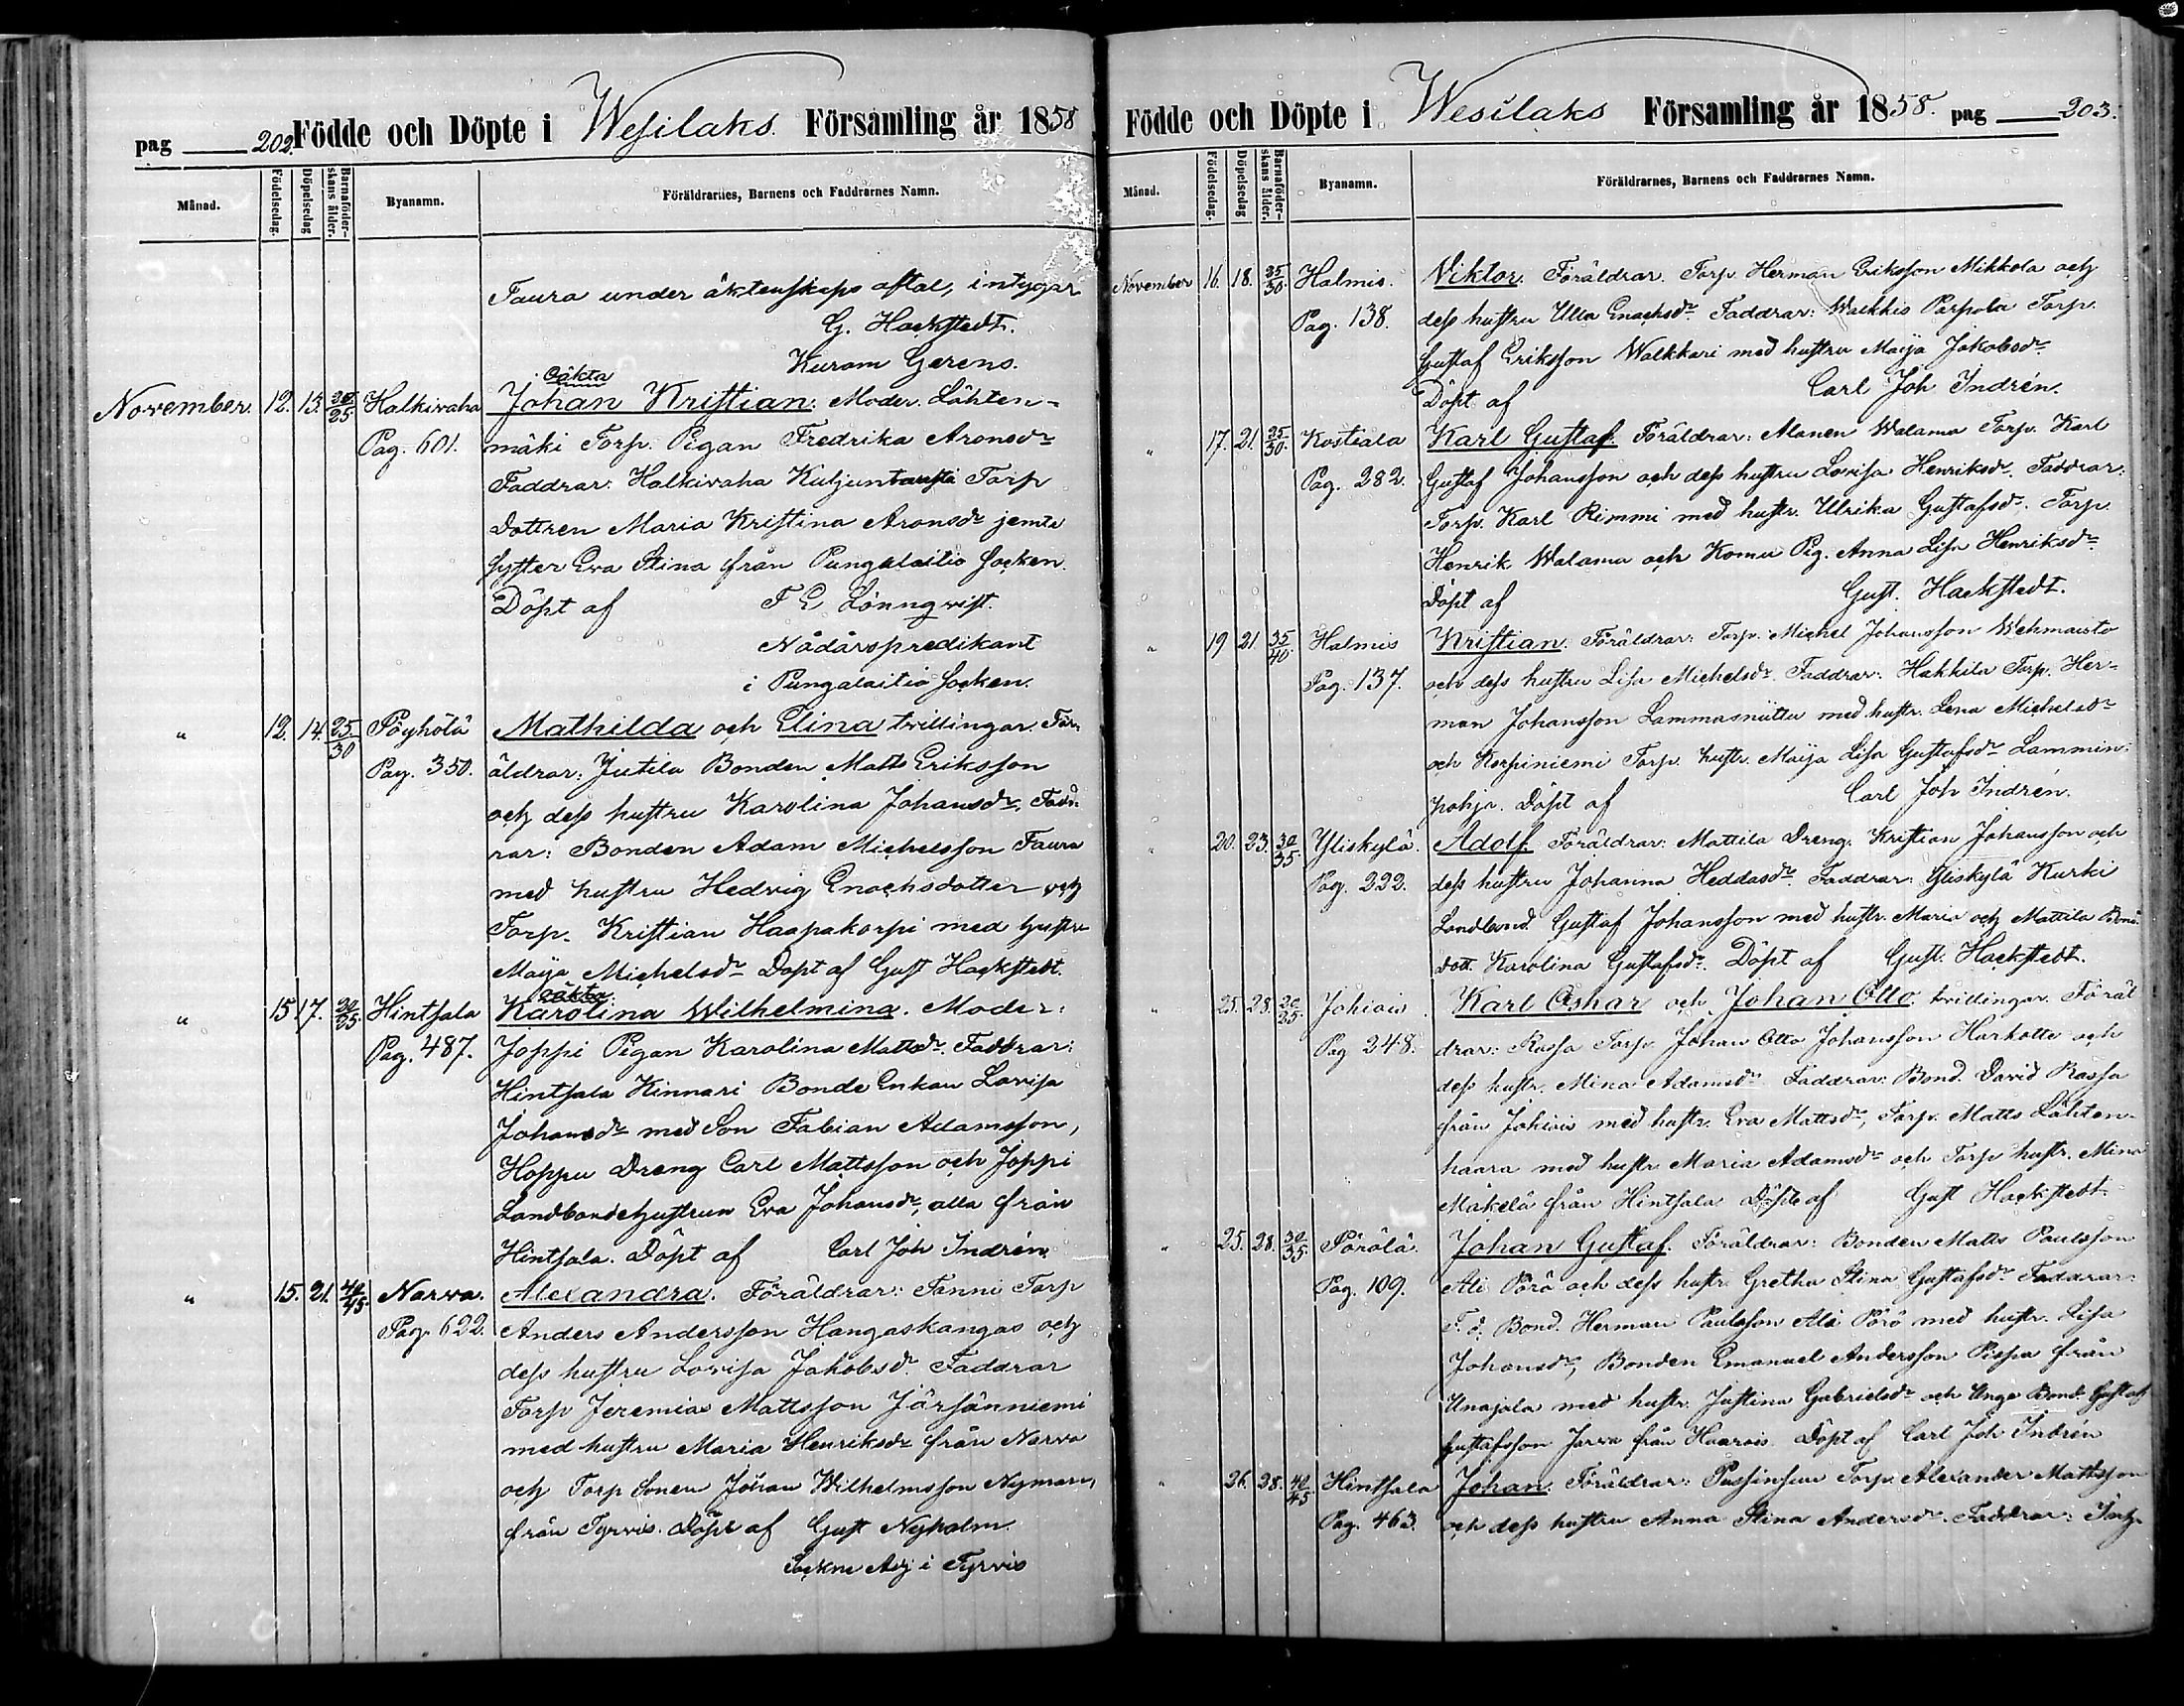 pag 202. Födde och Döpte i Wesilaks Församling år 1858
Månad. Födelsedag. Döpelsedag Barnaföderskans ålder. Byanamn. Föräldrarnes, Barnens och Faddrarnes Namn.
Taura under äktenskaps aftal, intygar
G. Hackstedt.
Kuram Gerens.
oäkta
November. 12. 13. 20/25 Halkivaha Johan Kristian. Moder. Lähten-
Pag. 601. mäki Torp. Pigan Fredrika Aronsdr
Faddrar: Halkivaha Kuljuntausta Torp
Dottren Maria Kristina Aronsdr jemte
syster Eva Stina från Pungalaitio Socken.
Döpt af F E Lönnqvist.
Nådårspredikant
i Pungalaitio Socken.
" 12. 14. 25/30 Pöyhölä Mathilda och Elina tvillingar. För-
Pag. 350. äldrar: Jutila Bonden Matts Eriksson
och dess hustru Karolina Johansdr. Fadd-
rar: Bonden Adam Michelsson Taura
med hustru Hedvig Enochsdotter och
Torp. Kristian Haapakorpi med hustru
Maija Michelsdr Döpt af Gust Hackstedt.
oäkta
" 15. 17. 30/35 Hintsala Karolina Wilhelmina. Moder:
Pag. 487. Joppi Pigan Karolina Mattsdr. Faddrar:
Hintsala Kinnari Bonde Enkan Lovisa
Johansdr med Son Fabian Adamsson,
Hoppu Dreng Carl Mattsson och Joppi
Landbondehustrun Eva Johansdr, alla från
Hintsala. Döpt af Carl Joh Indrén
" 15. 21. 40/45 Narva. Alexandra. Föräldrar: Tanni Torp
Pag. 622. Anders Andersson Hangaskangas och
dess hustru Lovisa Jakobsdr. Faddrar
Torp Jeremias Mattsson Järsänniemi
med hustru Maria Henriksdr från Narva
och Torp Sonen Johan Wilhelmsson Nyman,
från Tyrvis. Döpt af Gust Nyholm.
Sockne Adj i Tyrvis
Födde och Döpte i Wesilaks Församling år 1858. pag 203.
Månad. Födelsedag. Döpelsedag Barnaföderskans ålder. Byanamn. Föräldrarnes, Barnens och Faddrarnes Namn.
November 16. 18. 25/30 Halmis. Viktor. Föräldrar. Torp. Herman Eriksson Mikkola och
Pag. 138. dess hustru Ulla Enochsdr. Faddrar: Walkkis Parpola Torp.
Gustaf Eriksson Walkkari med hustru Maija Jakobsdr.
Döpt af Carl Joh Indrén.
" 17. 21. 25/30. Kostiala Karl Gustaf. Föräldrar: Alanen Walama Torp. Karl
Pag. 282. Gustaf Johansson och dess hustru Lovisa Henriksdr. Faddrar:
Torp. Karl Rimmi med hustr. Ulrika Gustafsdr. Torp.
Henrik Walama och Komu Pig. Anna Lisa Henriksdr.
Döpt af Gust. Hackstedt.
" 19 21 35/40. Halmis Kristian. Föräldrar: Torp. Michel Johansson Wehmaisto
Pag. 137. och dess hustru Lisa Michelsdr. Faddrar: Hakkila Torp. Her-
man Johansson Lammasniittu med hustr. Lena Michelsdr
och Korpiniemi Torp. hustr. Maija Lisa Gustafsdr Lammin-
pohja. Döpt af Carl Joh Indrén.
" 20. 23. 30/35. Yliskylä. Adolf. Föräldrar: Mattila Dreng. Kristian Johansson och
Pag. 222. dess hustru Johanna Heddasdr. Faddrar: Yliskylä Kurki
Landbond. Gustaf Johansson med hustr. Maria och Mattila Bond
dott. Karolina Gustafsdr. Döpt af Gust. Hackstedt.
" 25. 28. 20/25. Johiois. Karl Oskar och Johan Otto. tvillingar. Föräl
Pag 248. drar: Rassa Torp. Johan Otto Johansson Harkotte och
dess hustr. Mina Adamsdr Faddrar: Bond. David Rassa
från Johiois med hustr. Eva Mattsdr, Torp. Matts Lähten-
haara med hustr Maria Adamsdr och Torp hustr. Mina
Mäkelä från Hintsala Döpte af Gust Hackstedt.
" 25. 28. 30/35 Pörölä. Johan Gustaf. Föräldrar: Bonden Matts Paulsson
Pag. 109. Ali Pörö och dess hustr Gretha Stina Gustafsdr Faddrar:
F. d. Bond. Herman Paulsson Ali Pörö med hustr. Lisa
Johansdr, Bonden Emanuel Andersson Pispa från
Unajala med hustr. Justina Gabrielsdr och Unge Bond Gustaf
Gustafsson Jarva från Haarois. Döpt af Carl Joh Indrén
" 26. 28. 40/45 Hintsala Johan. Föräldrar: Pussinsuu Torp. Alexander Mattsson
Pag. 463. och dess hustru Anna Stina Andersdr. Faddrar: